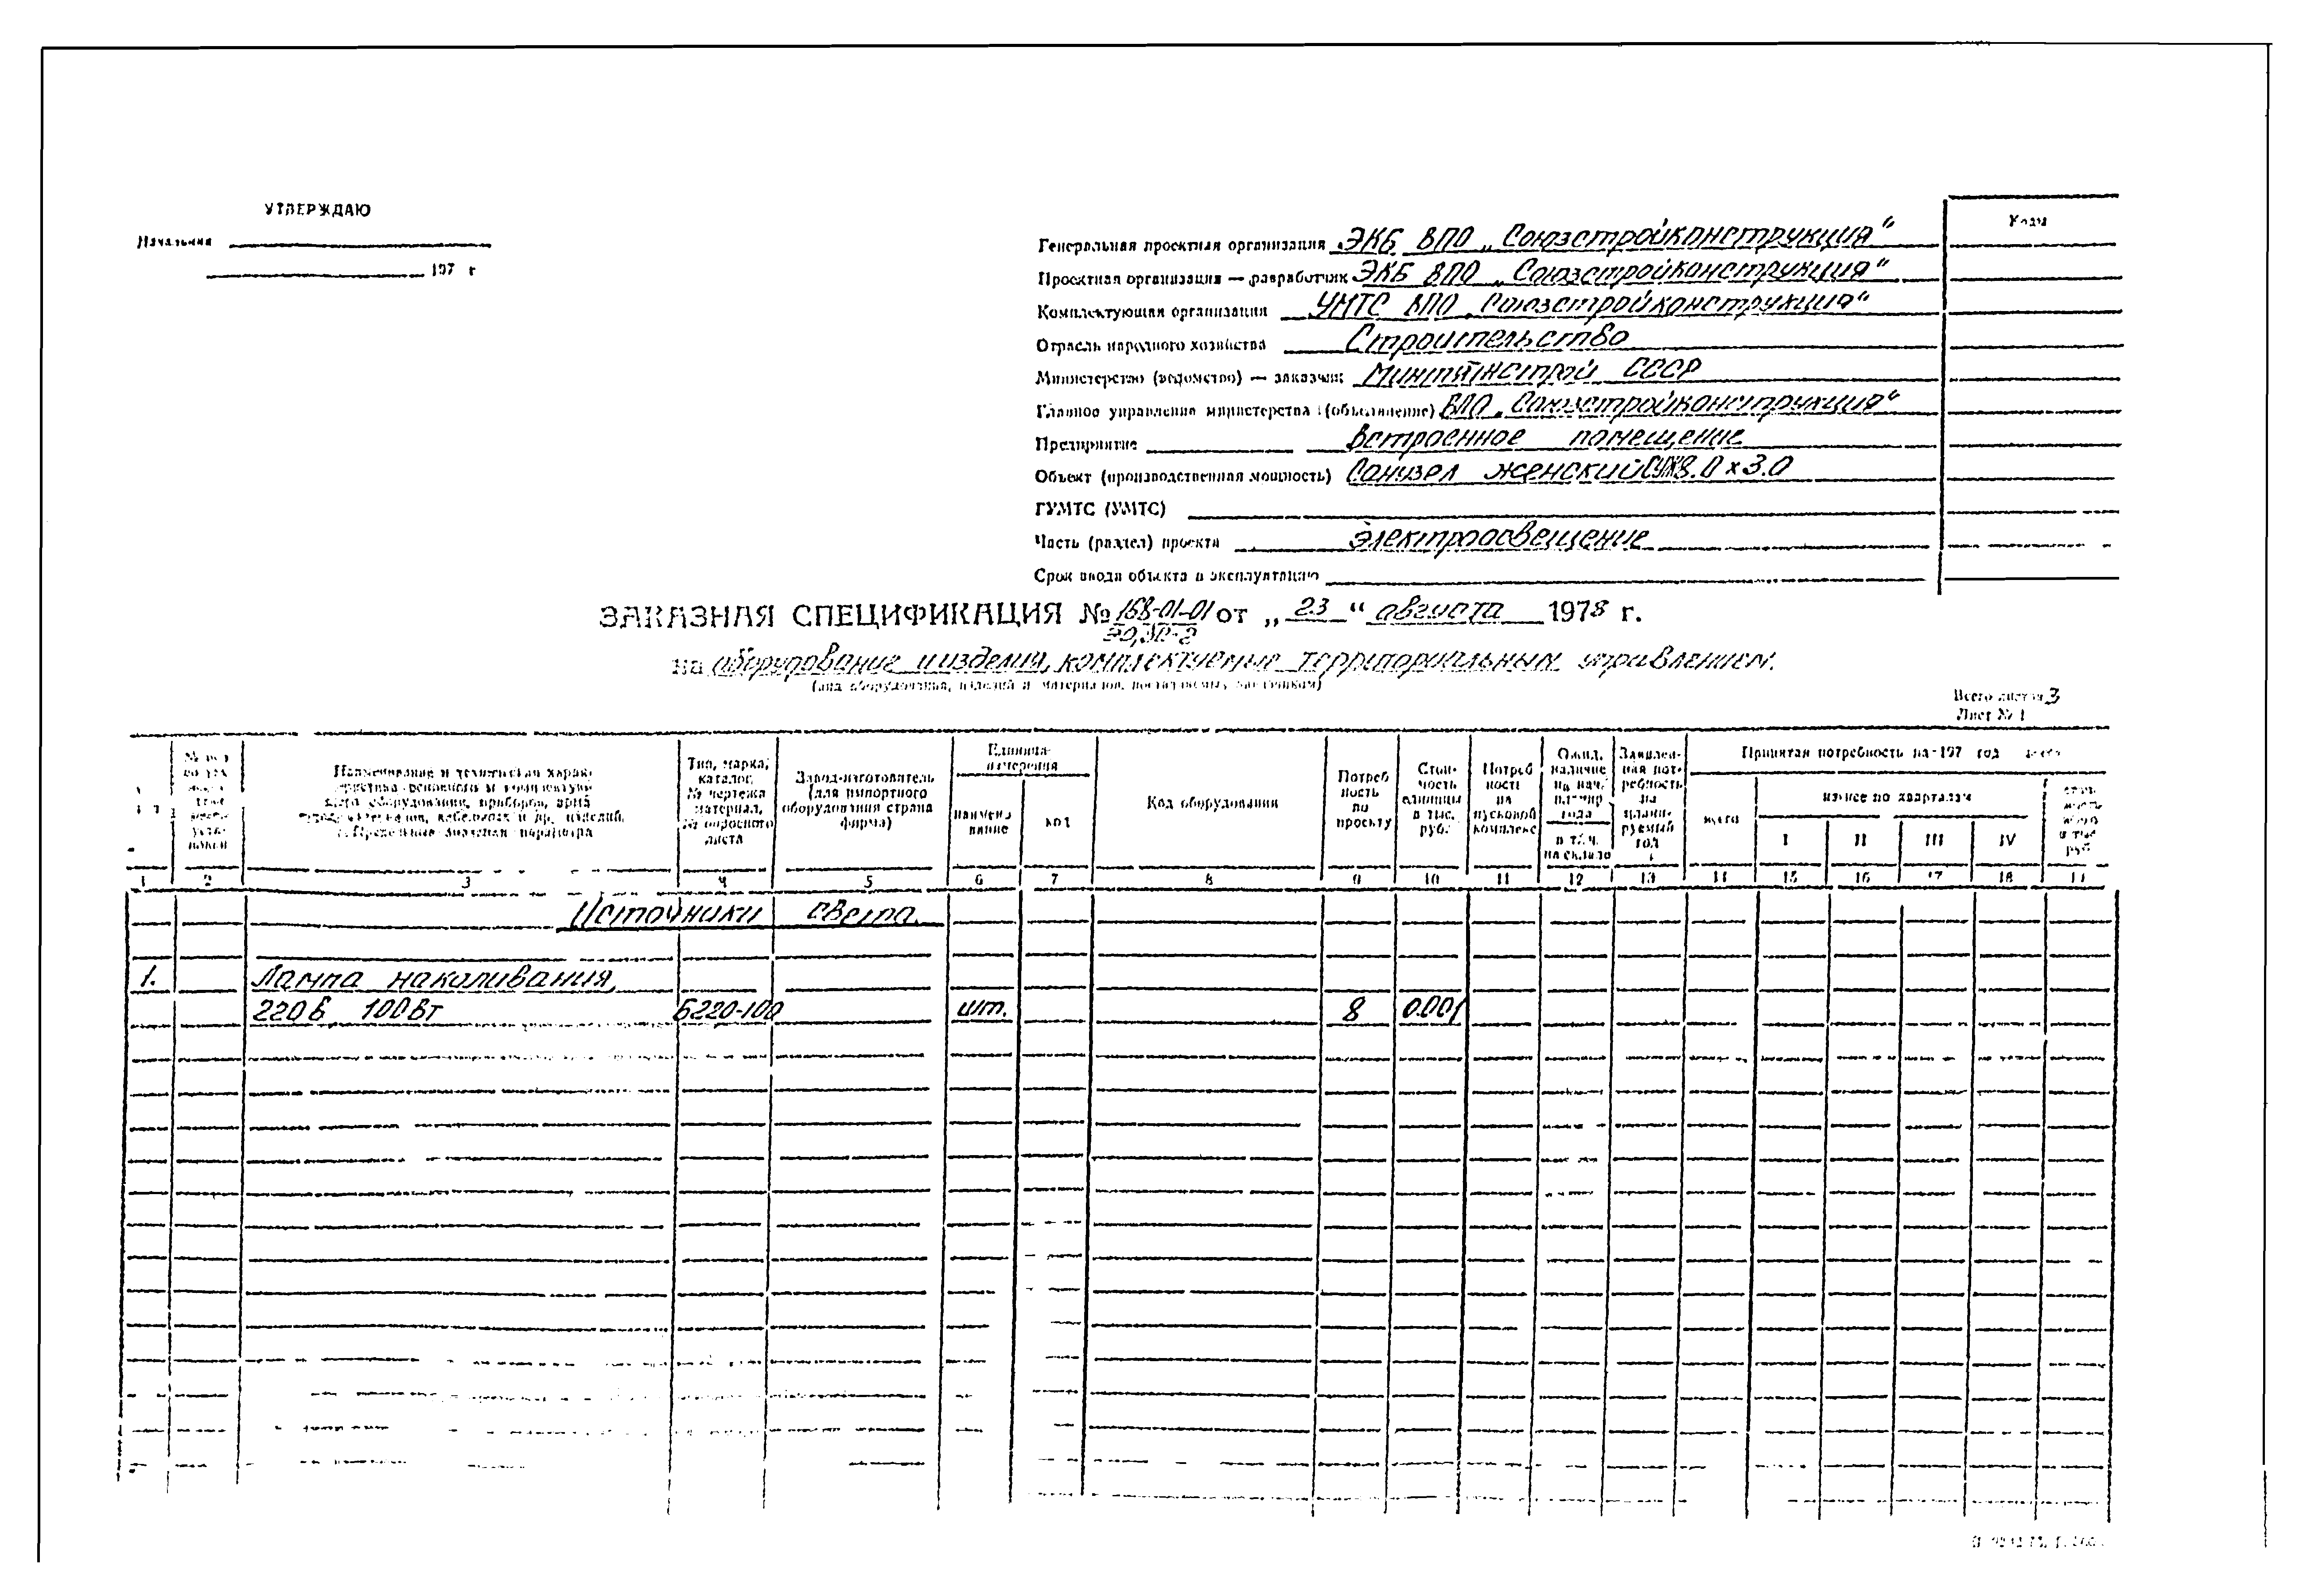 УТВЕРЖДАЮ
Начальник
197 г
Коды
Генеральная проектная организация ЭКБ ВПО „Союзстройконструкция“
Проектная организация — разработчик ЭКБ ВПО „Союзстройконструкция“
Комплектующая организация УМТС ВПО „Союзстройконструкция“
Отрасль народного хозяйства Строительство
Министерство (ведомство) — заказчик Минтяжстрой СССР
Главное управление министерства (объединение) ВПО „Союзстройконструкция“
Предприятие Встроенное помещение
Объект (производственная мощность) Санузел женский 3.0 x 3.0
ГУМТС (УМТС)
Часть (раздел) проекта Электроосвещение
Срок ввода объекта в эксплуатацию
ЗАКАЗНАЯ СПЕЦИФИКАЦИЯ № 168-01-01 от „ 23 “ августа 1978 г.
на оборудование и изделия, комплектуемые территориальным управлением.
(вид оборудования, изделий и материалов, поставляемых заказчиком)
Всего листов 3
Лист № 1
Наименование и техническая характеристика основного и комплектующего оборудования, приборов, арматуры, материалов, кабельных и др. изделий.
Тип, марка, каталог, № чертежа материал, № опросного листа
Завод-изготовитель (для импортного оборудования страна фирма)
Единица измерения
наименование
код
Код оборудования
Потребность по проекту
Стоимость единицы в тыс. руб.
Потребность на пусковой комплекс
Ожид. наличие на нач. планир года
в т. ч. на складе
Заявленная потребность на планируемый год
Принятая потребность на 197 год всего
всего
из нее по кварталам
I II III IV
1 2 3 4 5 6 7 8 9 10 11 12 13 14 15 16 17 18 19
Источники света.
1. Лампа накаливания,
220 В 100 Вт Б220-100 шт. 8 0.001